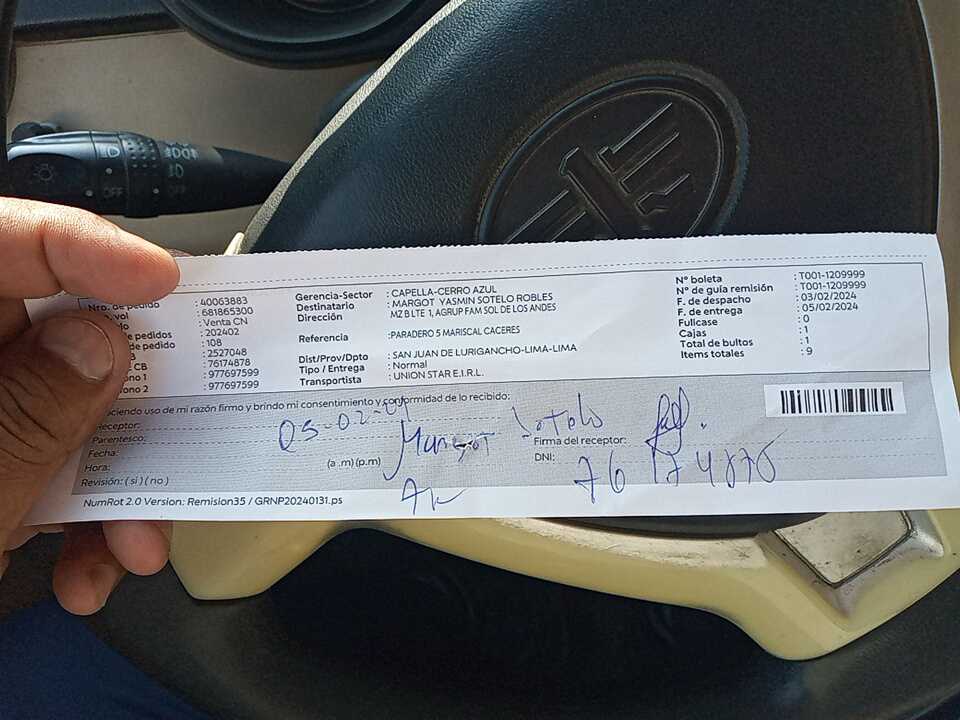 Nro. de pedido : 40063883
vol : 681865300
lo : Venta CN
de pedidos : 202402
de pedido : 108
B : 2527048
CB : 76174878
ono 1 : 977697599
ono 2 : 977697599
Gerencia-Sector : CAPELLA-CERRO AZUL
Destinatario : MARGOT YASMIN SOTELO ROBLES
Dirección MZ B LTE 1, AGRUP FAM SOL DE LOS ANDES
Referencia :PARADERO 5 MARISCAL CACERES
Dist/Prov/Dpto : SAN JUAN DE LURIGANCHO-LIMA-LIMA
Tipo / Entrega : Normal
Transportista : UNION STAR E.I.R.L.
N° boleta : T001-1209999
N° de guía remisión : T001-1209999
F. de despacho : 03/02/2024
F. de entrega : 05/02/2024
Fullcase : 0
Cajas : 1
Total de bultos : 1
Items totales : 9
aciendo uso de mi razón firmo y brindo mi consentimiento y conformidad de lo recibido:
Receptor: Margot Sotelo
Parentesco:
Fecha: 05-02-
Hora: (a .m) (p.m)
Revisión: ( si ) ( no )
Firma del receptor:
DNI: 76174878
NumRot 2.0 Version: Remision35 / GRNP20240131.ps
OFF
OFF